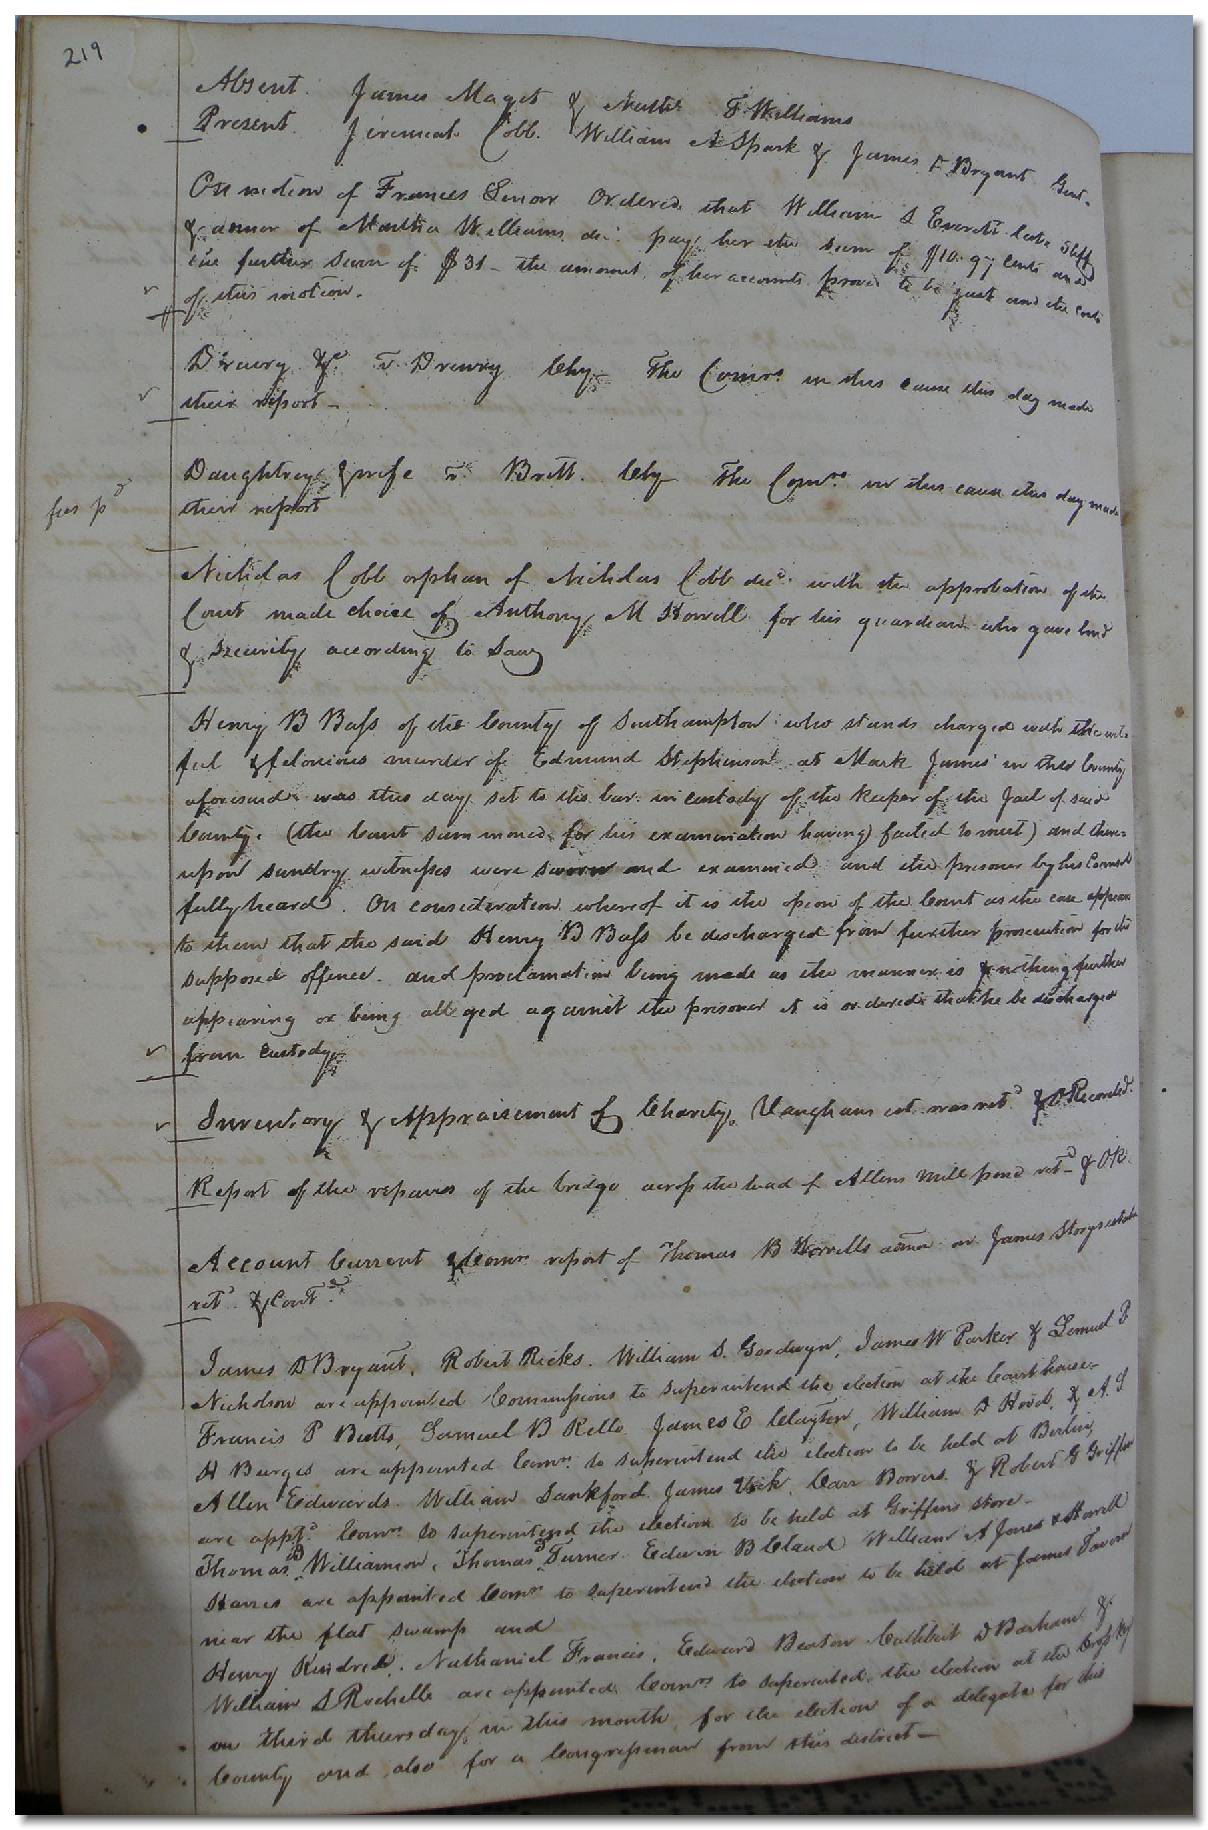 219
Absent. James Maget & Nathl F Williams
Present. Jeremiah Cobb. William A Spark & James F. Bryant Gent.
On motion of Frances Ordered that William S Everett late Shff
& admor of Martha Williams decd. pay her the sum of $10. 97 cents and
the further sum of $31 - the amount of her accounts proved to be just and the costs
of this motion.
Drewry &c. vs Drewry Chy - The Comrs. in this cause this day made
their report -
Daughtrey & wife vs. Britt. Chy The Comrs in this cause this day made
fees pd
their report
Nicholas Cobb orphan of Nicholas Cobb decd. with the approbation of the
Court made choice of Anthony M Howell for his guardian who gave bond
& security according to Law
Henry B Bass of the County of Southampton who stands charged with the
ful & felonious murder of Edmund Stephenson at Mark James' in the County
aforesaid was this day set to the bar in custody of the keeper of the Jail of said
County. (the Court summoned for his examination having failed to meet) and there-
upon sundry witnesses were sworn and examined and the prisoner by his Counsel
fully heard. On consideration whereof it is the opion of the Court as the case appears
to them that the said Henry B Bass be discharged from further prosecution for the
supposed offence. and proclamation being made as the manner is & nothing further
appearing or being alleged against the prisoner it is ordered that he be discharged
from custody.
Inventory & Appraisement of Charity Vaughans est. was retd & O Recorded.
Report of the repaires of the bridge across the head of Allens Mill pond retd & OR.
Account Current & Comrs report of Thomas B Howells admor on James Storys estate
retd. & Contd.
James D Bryant, Robert Ricks. William S. Goodwyn, James W Parker & Lemuel P
Nicholson are appointed Commissions to superintend the election at the Courthouse -
Francis P Butts, Samuel B Kello James E Clayton, William D Hood, & A S
H Burges are appointed Comrs. to superintend the election to be held at Berlin
Allen Edwards. William Lankford. James Vick, Carr Bowers. & Robert G Griffin
are apptd Comrs to superintend the election to be held at Griffins store -
Thomas B Williamson, Thomas B Turner Edwin B Claud William A Jones & Howell
Harris are appointed Comrs to superintend the election to be held at James Tavern
near the flat swamp and
Henry Kindred, Nathaniel Francis, Edward Beaton Cuthbert D Barham &
William S Rochelle are appointed Comrs to superintend the election at the Cross Keys
on third thursday in this month, for the election of a delegate for this
County and also for a Congressman from this district -